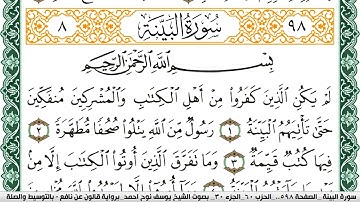 ٩٨ سُورَةُ البَيِّنَةِ ٨
بِسْمِ اللَّهِ الرَّحْمَٰنِ الرَّحِيمِ
لَمْ يَكُنِ الَّذِينَ كَفَرُوا مِنْ أَهْلِ الْكِتَابِ وَالْمُشْرِكِينَ مُنفَكِّينَ
حَتَّىٰ تَأْتِيَهُمُ الْبَيِّنَةُ ١ رَسُولٌ مِّنَ اللَّهِ يَتْلُوا صُحُفًا مُّطَهَّرَةً ٢
فِيهَا كُتُبٌ قَيِّمَةٌ ٣ وَمَا تَفَرَّقَ الَّذِينَ أُوتُوا الْكِتَابَ إِلَّا مِن
سورة البينة .. الصفحة ٥٩٨.. الحزب ٦٠ .. الجزء ٣٠.. بصوت الشيخ يوسف نوح احمد برواية قالون عن نافع - بالتوسيط والصلة